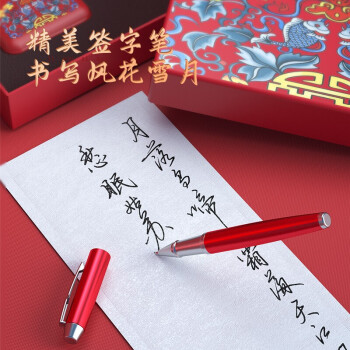 精美签字笔
书写风花雪月
月落乌啼霜满天江
愁眠姑苏